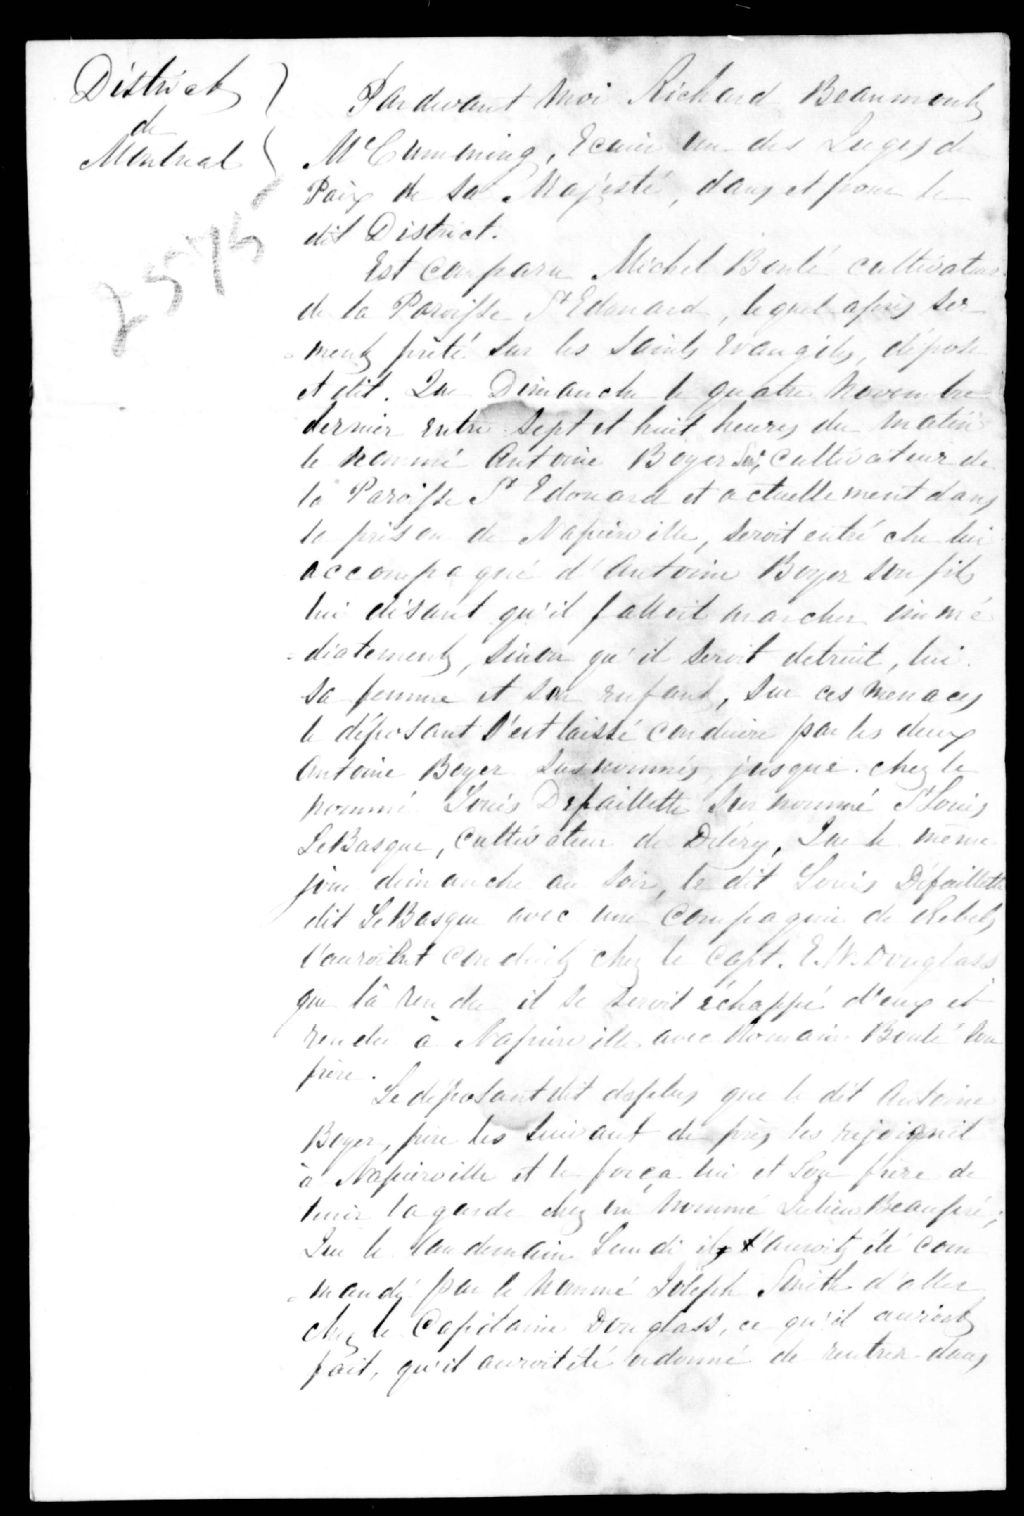 District
de
Montreal
2575
Pardevant Moi Richard Beaumont
McCumming, Ecuier un des Juges de
Paix de Sa Majesté, dans et pour le
dit District.
Est Comparu Michel Benté cultivateur
de la Paroisse St Edouard, lequel après ser-
-ment prêté sur les Saints Evangiles, dépose
et dit. Que Dimanche le quatre Novembre
dernier entre Sept et huit heures du matin
le nommé Antoine Boyer Senr, Cultivateur de
la Paroisse St Edouard et actuellement dans
la prison de Napierville, seroit entré che lui
accompagné d'Antoine Boyer son fils
lui disant qu'il falloit marcher immé
-diatement, sinon qu'il seroit detruit, lui
sa femme et son enfant, Sur ces menaces
le déposant s'est laissé conduire par les deux
Antoine Boyer susnommés, jusque chez le
nommé Louis Defaillette surnommé St Louis
LeBasque, Cultivateur de Déléry, Que le même
jour dimanche au soir, le dit Louis Défaillette
dit LeBasque avec une Compagnie de Rebels
l'auroient conduit chez le Capt. E. W. Douglass
que là rendu il se seroit échappé d'eux et
rendu à Napierville avec Romain Benté son
frère.
Le déposant dit desplus que le dit Antoine
Boyer, père les suivant de près les rejoignit
à Napierville et le força lui et son frère de
tenir la garde chez un nommé Julien Beaupré;
Que le landemain Lundi il l'auroit été com
-mandé par le nommé Joseph Smith d'aller
chez le Capitaine Douglass, ce qu'il auroit
fait, qu'il auroit été ordonné de rentrer dans